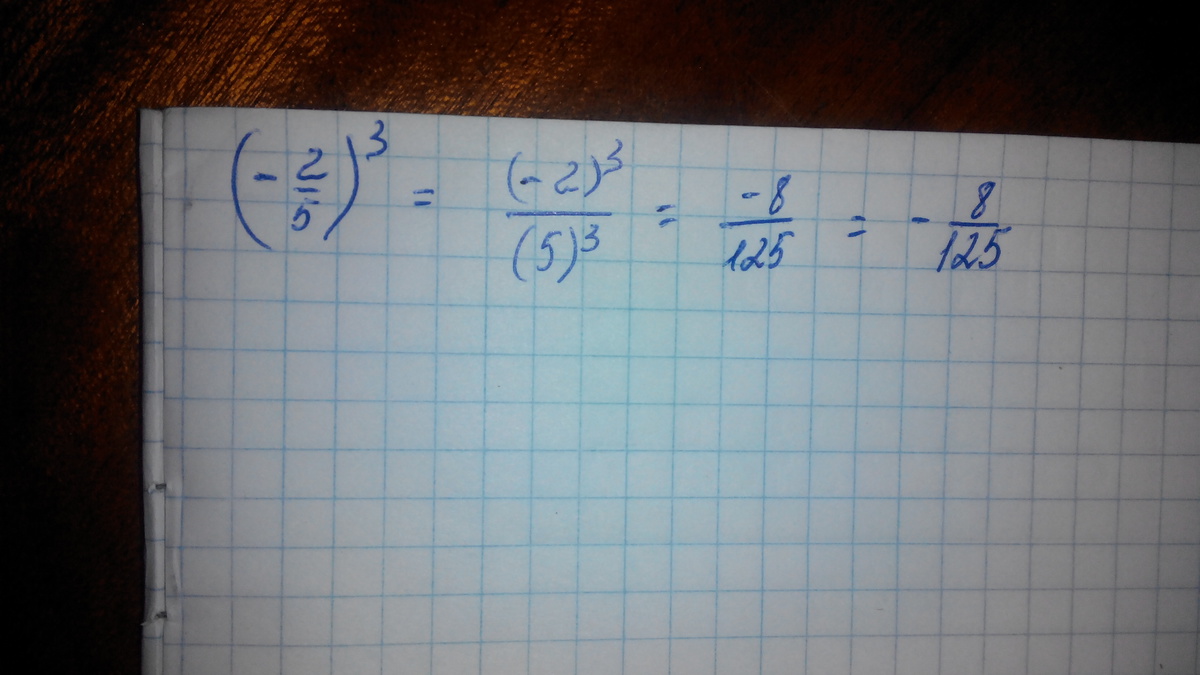 (-2/5)³ = (-2)³/(5)³ = -8/125 = - 8/125